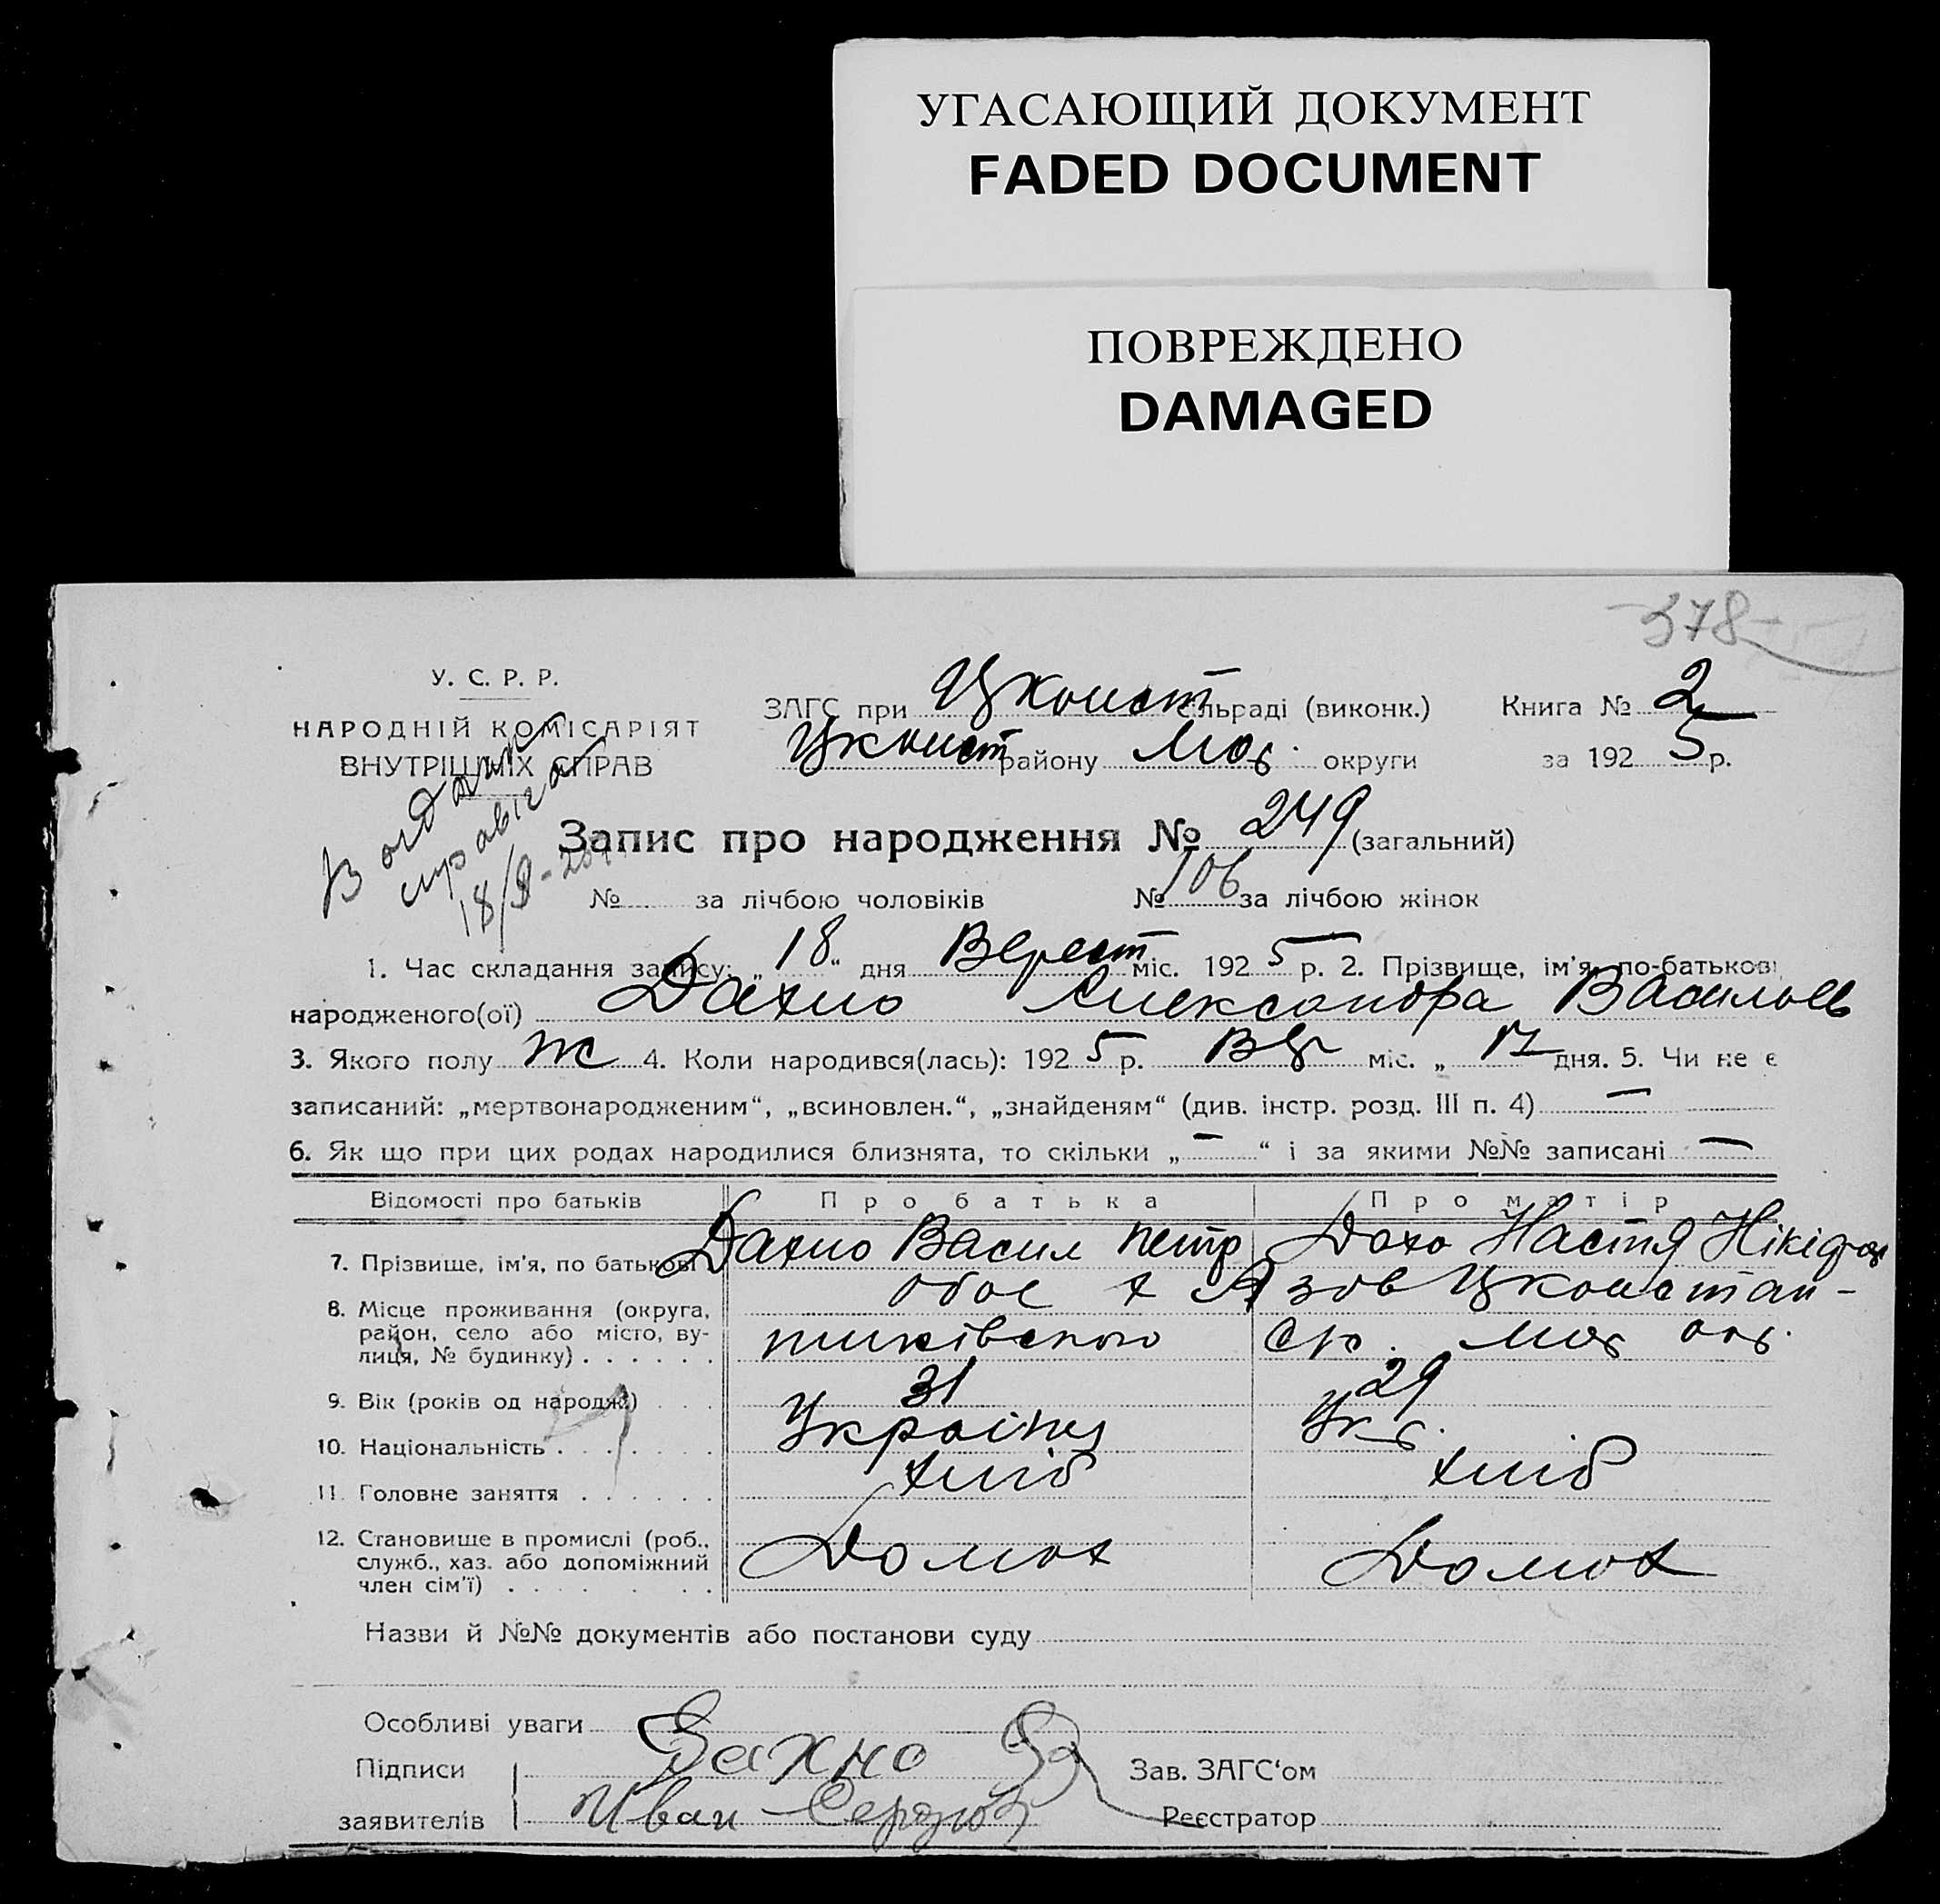 УГАСАЮЩИЙ ДОКУМЕНТ
FADED DOCUMENT
ПОВРЕЖДЕНО
DAMAGED
378
У. С. Р. Р.
НАРОДНІЙ КОМІСАРІЯТ
ВНУТРІШНІХ СПРАВ
ЗАГС при Цконст сільраді (виконк.) Книга № 2
Цконст району округи за 192 5 р.
Запис про народження № 249 (загальний)
№ за лічбою чоловіків № 106 за лічбою жінок
1. Час складання запису: „ 18 “ дня Верест міс. 192 5 р. 2. Прізвище, ім'я, по-батькові
народженого(ої) Дахно Александра Васильев
3. Якого полу ж 4. Коли народився(лась): 192 5 р. міс. „ 17 дня. 5. Чи не є
записаний: „мертвонародженим“, „всиновлен.“, „знайденям“ (див. інстр. розд. III п. 4) —
6. Як що при цих родах народилися близнята, то скільки „ — “ і за якими №№ записані —
Відомості про батьків Про батька Про матір
7. Прізвище, ім'я, по батькові Дахно Васил Петр Дахо Настя
8. Місце проживання (округа, обое х Азов Цконстан-
район, село або місто, ву-
лиця, № будинку)
9. Вік (років од народж.) 31 29
10. Національність Українц Укр.
11. Головне заняття хліб хліб
12. Становище в промислі (роб., Домох Домох
служб., хаз. або допоміжний
член сім'ї)
Назви й №№ документів або постанови суду
Особливі уваги
Підписи Дахно Зав. ЗАГС‘ом
заявителів Иван Сердюк Реєстратор